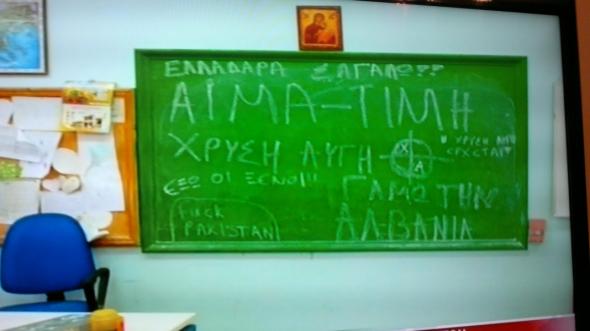 ΕΛΛΑΔΑΡΑ Σ' ΑΓΑΠΩ??
ΑΙΜΑ-ΤΙΜΗ
ΧΡΥΣΗ ΑΥΓΗ
Χ Α
Η ΧΡΥΣΗ ΑΥΓΗ
ΕΡΧΕΤΑΙ
ΕΞΩ ΟΙ ΞΕΝΟΙ!!
ΓΑΜΩ ΤΗΝ
ΑΛΒΑΝΙΑ
Fuck
PAKISTAN